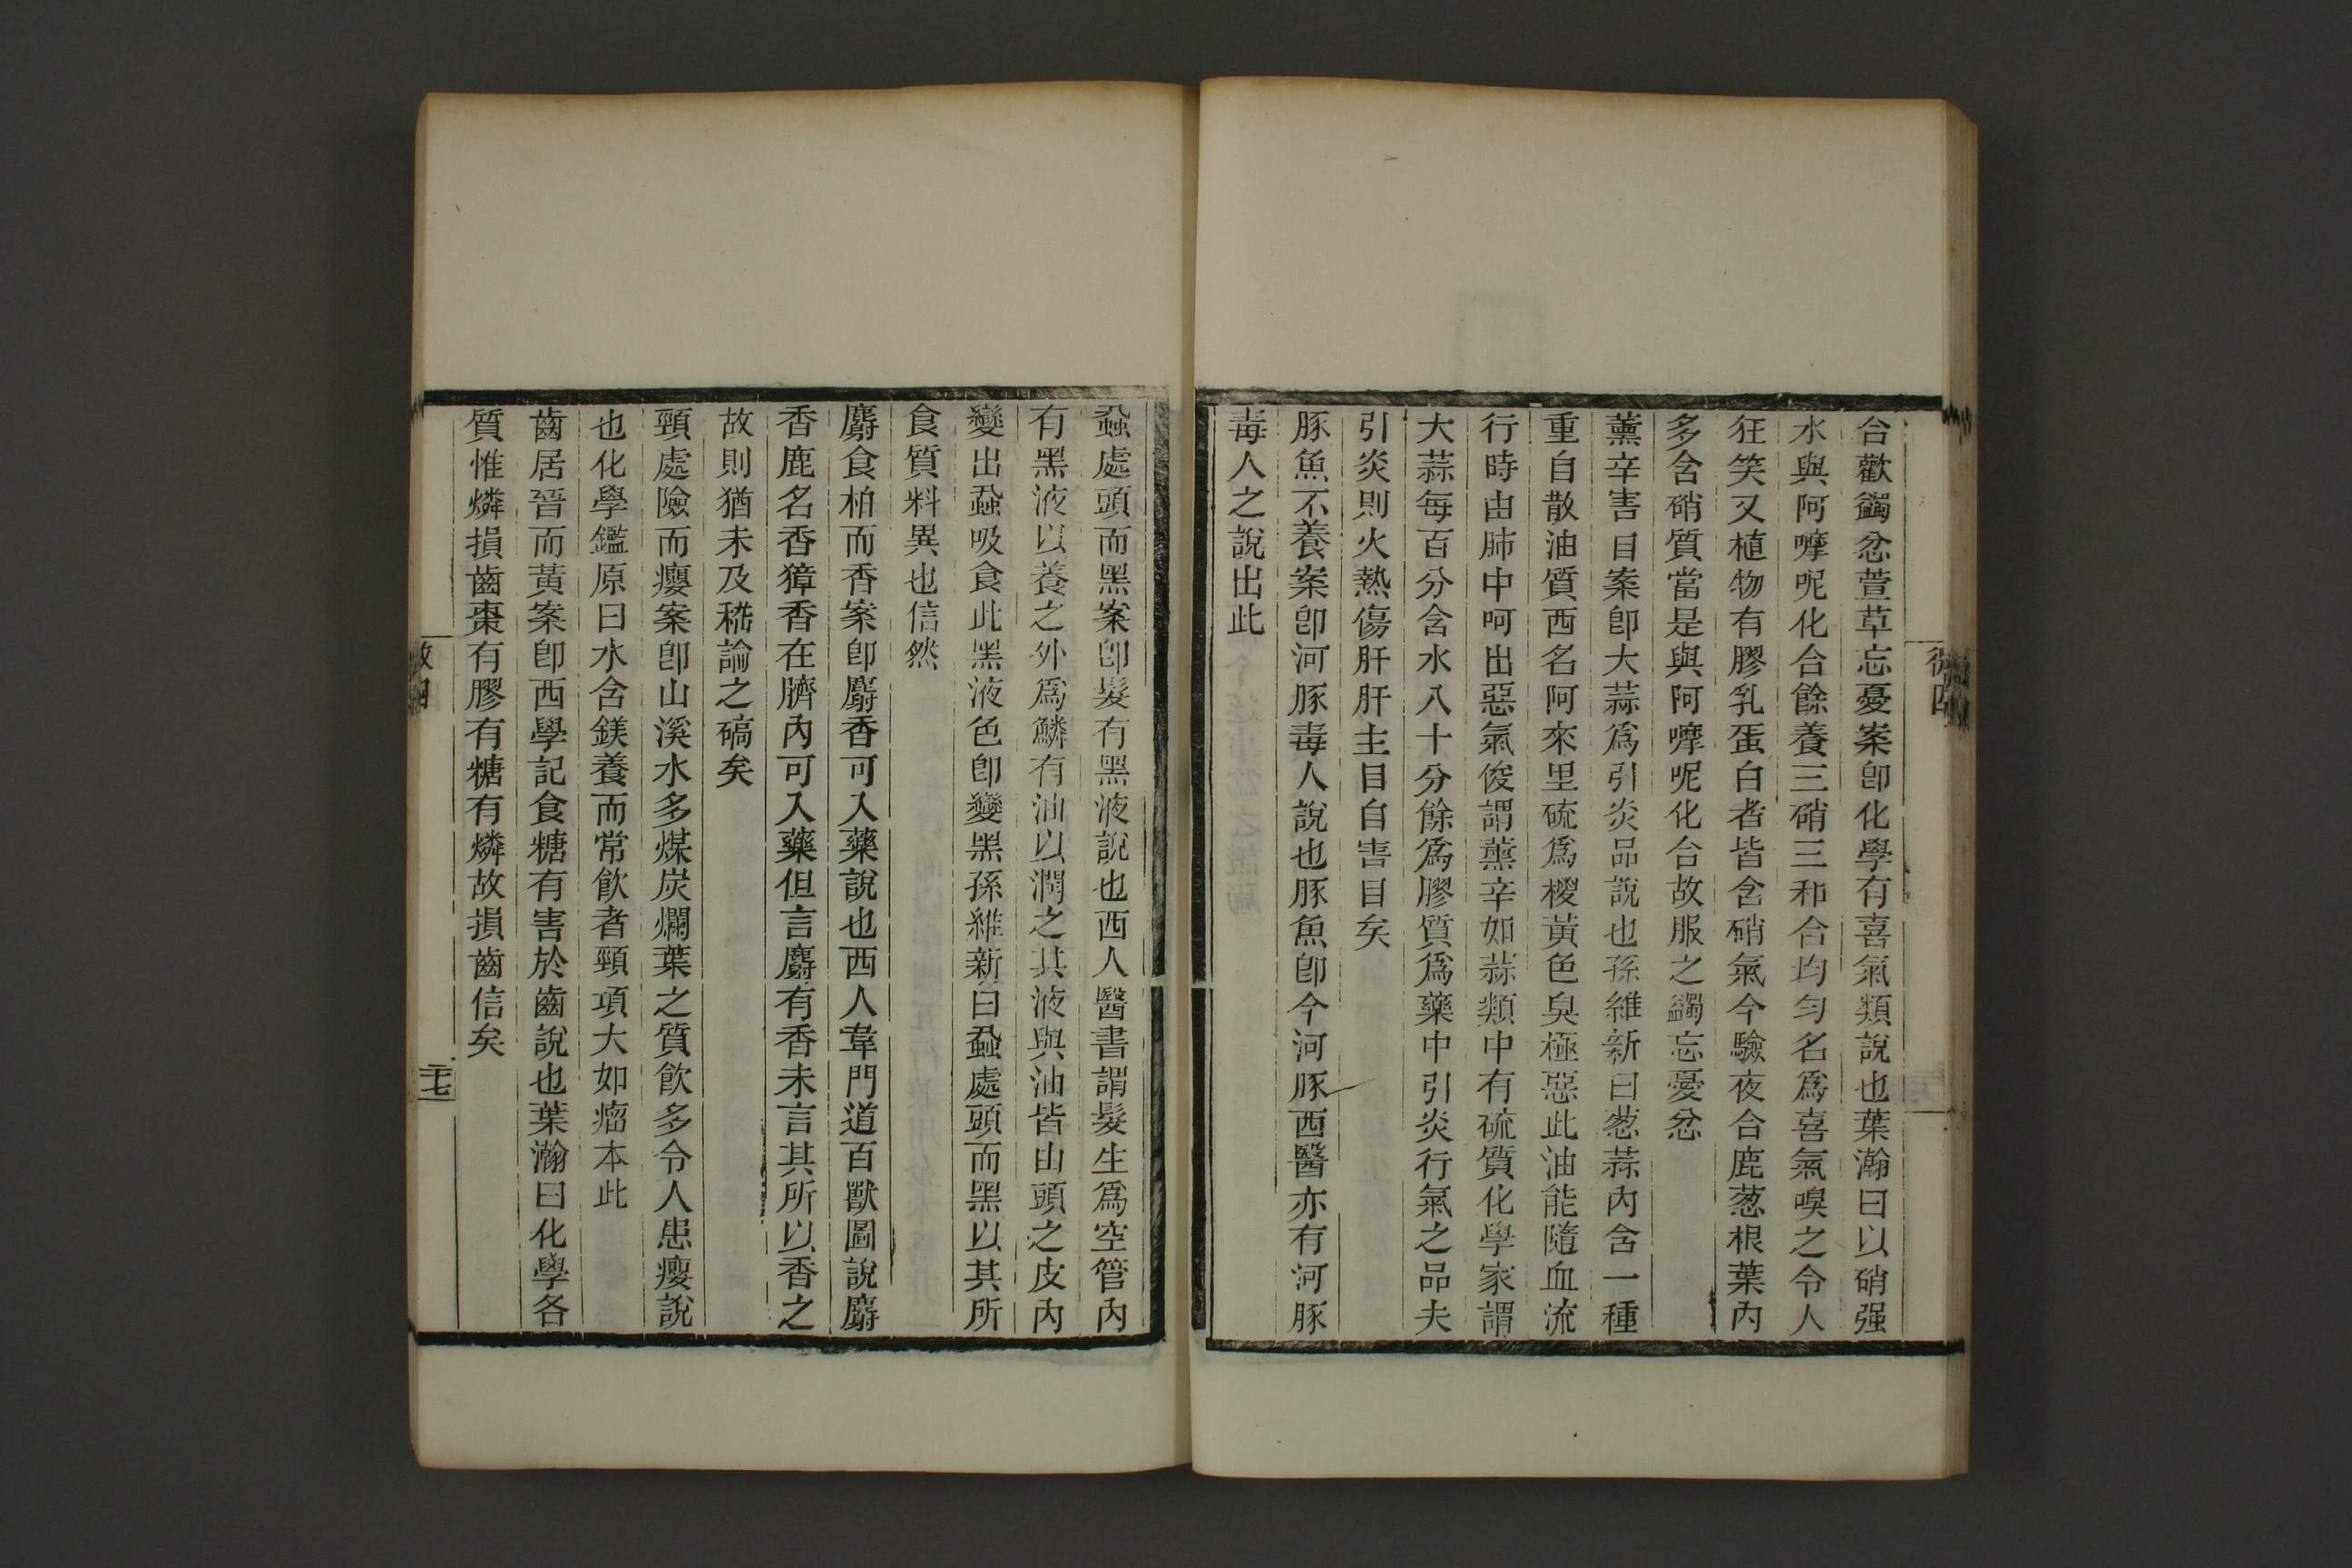 合歡蠲忿萱草忘憂案卽化學有喜氣類說也葉瀚曰以硝强
水與阿嚤呢化合餘養三硝三和合均勻名爲喜氣嗅之令人
狂笑又植物有膠乳蛋白者皆含硝氣今驗夜合鹿葱根葉內
多含硝質當是與阿嚤呢化合故服之蠲忘憂忿
薰辛害目案卽大蒜爲引炎品說也孫維新曰葱蒜內含一種
重自散油質西名阿來里硫爲椶黃色臭極惡此油能隨血流
行時由肺中呵出惡氣俊謂薰辛如蒜類中有硫質化學家謂
大蒜每百分含水八十分餘爲膠質爲藥中引炎行氣之品夫
引炎則火熱傷肝肝主目自害目矣
豚魚不養案卽河豚毒人說也豚魚卽今河豚西醫亦有河豚
毒人之說出此
蝨處頭而黑案卽髮有黑液說也西人醫書謂髮生爲空管內
有黑液以養之外爲鱗有油以潤之其液與油皆由頭之皮內
變出蝨吸食此黑液色卽變黑孫維新曰蝨處頭而黑以其所
食質料異也信然
麝食柏而香案卽麝香可入藥說也西人韋門道百獸圖說麝
香鹿名香獐香在臍內可入藥但言麝有香未言其所以香之
故則猶未及嵇論之碻矣
頸處險而癭案卽山溪水多煤炭爛葉之質飮多令人患癭說
也化學鑑原曰水含鎂養而常飮者頸項大如瘤本此
齒居晉而黃案卽西學記食糖有害於齒說也葉瀚曰化學各
質惟燐損齒棗有膠有糖有燐故損齒信矣
二十七